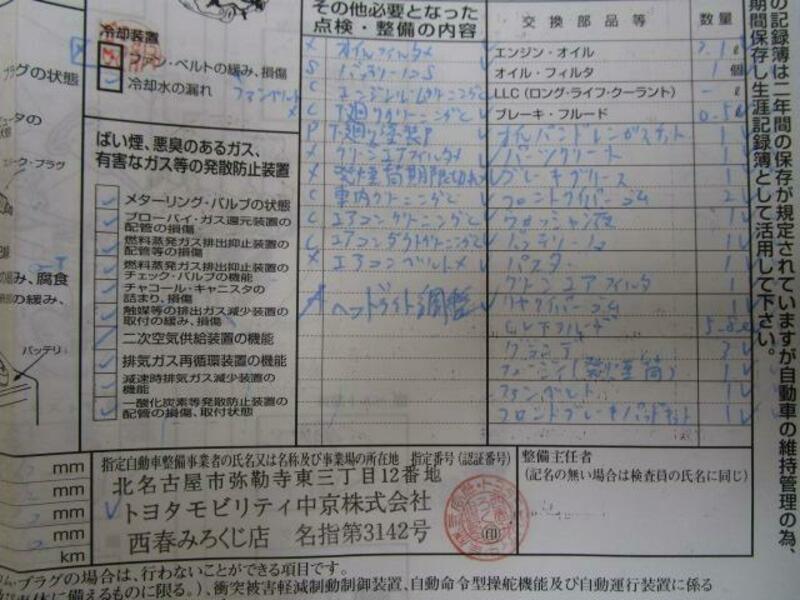 冷却装置
ファン・ベルトの緩み、損傷
冷却水の漏れ
ファンベルト
プラグの状態
ばい煙、悪臭のあるガス、
有害なガス等の発散防止装置
メターリング・バルブの状態
ブローバイ・ガス還元装置の
配管の損傷
燃料蒸発ガス排出抑止装置の
配管等の損傷
燃料蒸発ガス排出抑止装置の
チェック・バルブの機能
チャコール・キャニスタの
詰まり、損傷
触媒等の排出ガス減少装置の
取付の緩み、損傷
二次空気供給装置の機能
排気ガス再循環装置の機能
減速時排気ガス減少装置の
機能
一酸化炭素等発散防止装置の
配管の損傷、取付状態
腐食
の緩み、
バッテリ
その他必要となった
点検・整備の内容
オイルフィルタ
エンジンルームクリーニング
下廻りクリーニング
下廻り塗装P
クリーンエアフィルタ
発煙筒期限切れ
車内クリーニング
エアコンクリーニング
エアコンダクトクリーニング
エアコンベルト
ヘッドライト調整
交換部品等 数量
エンジン・オイル ℓ
オイル・フィルタ 1 個
LLC (ロング・ライフ・クーラント) - ℓ
ブレーキ・フルード 0.5ℓ
オイルパンドレンガスケット 1
パーツクリーナ 1
ブレーキグリース 1
フロントワイパーゴム 2
ウォッシャ液 1
クリーンエアフィルタ 1
リヤワイパーゴム 1
ファンベルト 1
フロントブレーキパッドキット 1
の記録簿は二年間の保存が規定されていますが自動車の維持管理の為、
期間保存し生涯記録簿として活用して下さい。
mm
mm
mm
mm
km
指定自動車整備事業者の氏名又は名称及び事業場の所在地 指定番号(認証番号)
北名古屋市弥勒寺東三丁目12番地
トヨタモビリティ中京株式会社
西春みろくじ店 名指第3142号
整備主任者
(記名の無い場合は検査員の氏名に同じ)
プラグの場合は、行わないことができる項目です。
に備えるものに限る。)、衝突被害軽減制動制御装置、自動命令型操舵機能及び自動運行装置に係る